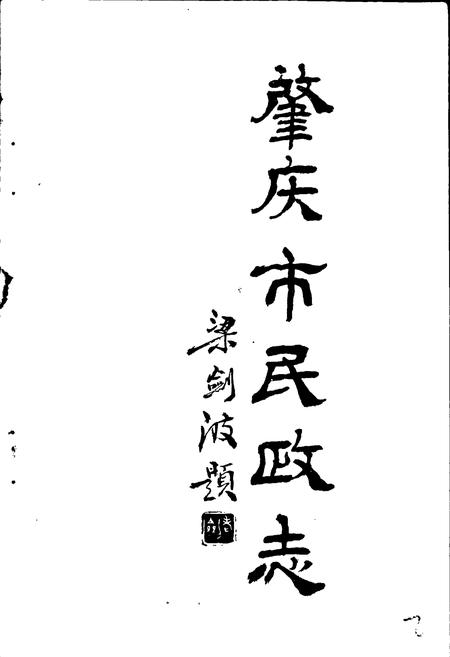 肇庆市民政志
梁劍波题